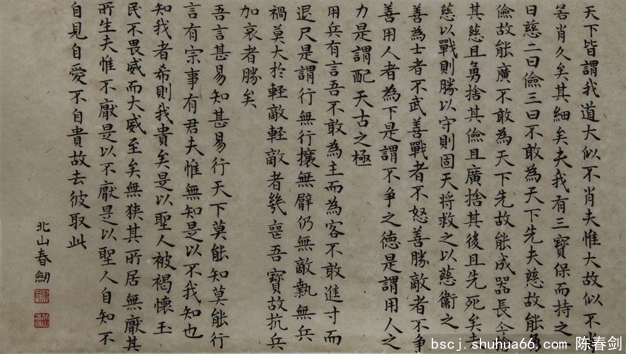 天下皆謂我道大似不肖夫惟大故似不
若肖久矣其細矣夫我有三寶保而持之
曰慈二曰儉三曰不敢為天下先夫慈故能
儉故能廣不敢為天下先故能成器長今
其慈且勇捨其儉且廣捨其後且先死矣
慈以戰則勝以守則固天將救之以慈衛之
善為士者不武善戰者不怒善勝敵者不爭
善用人者為下是謂不爭之德是謂用人之
力是謂配天古之極
用兵有言吾不敢為主而為客不敢進寸而
退尺是謂行無行攘無臂仍無敵執無兵
禍莫大於輕敵輕敵者幾喪吾寶故抗兵
加哀者勝矣
吾言甚易知甚易行天下莫能知莫能行
言有宗事有君夫惟無知是以不我知也
知我者希則我貴矣是以聖人被褐懷玉
民不畏威而大威至矣無狹其所居無厭其
所生夫惟不厭是以不厭是以聖人自知不
自見自愛不自貴故去彼取此
北山春劍
bscj.shuhua66.com 陈春剑